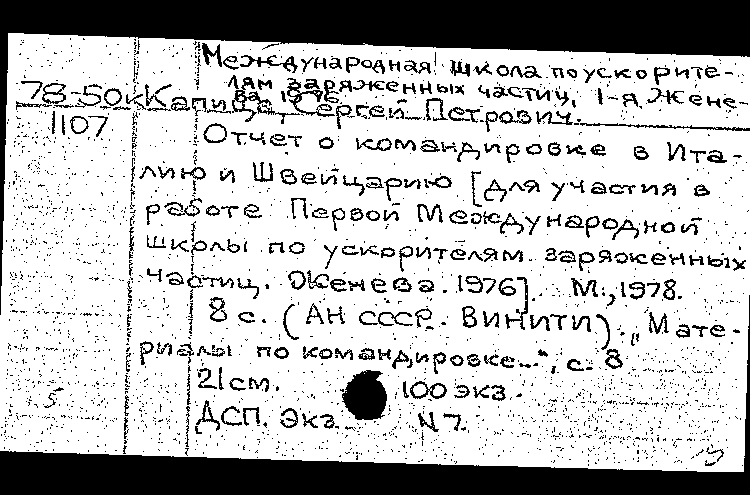 Международная школа по ускорите-
лям заряженных частиц, 1-я, Жене-
ва, 1976
78-50к Капица, Сергей Петрович.
1107
Отчет о командировке в Ита-
лию и Швейцарию [для участия в
работе Первой Международной
школы по ускорителям заряженных
частиц. Женева. 1976]. М., 1978.
8 с. (АН СССР. ВИНИТИ). „Мате-
риалы по командировке...", с. 8
21 см. 100 экз.
5
ДСП. Экз. N 7.